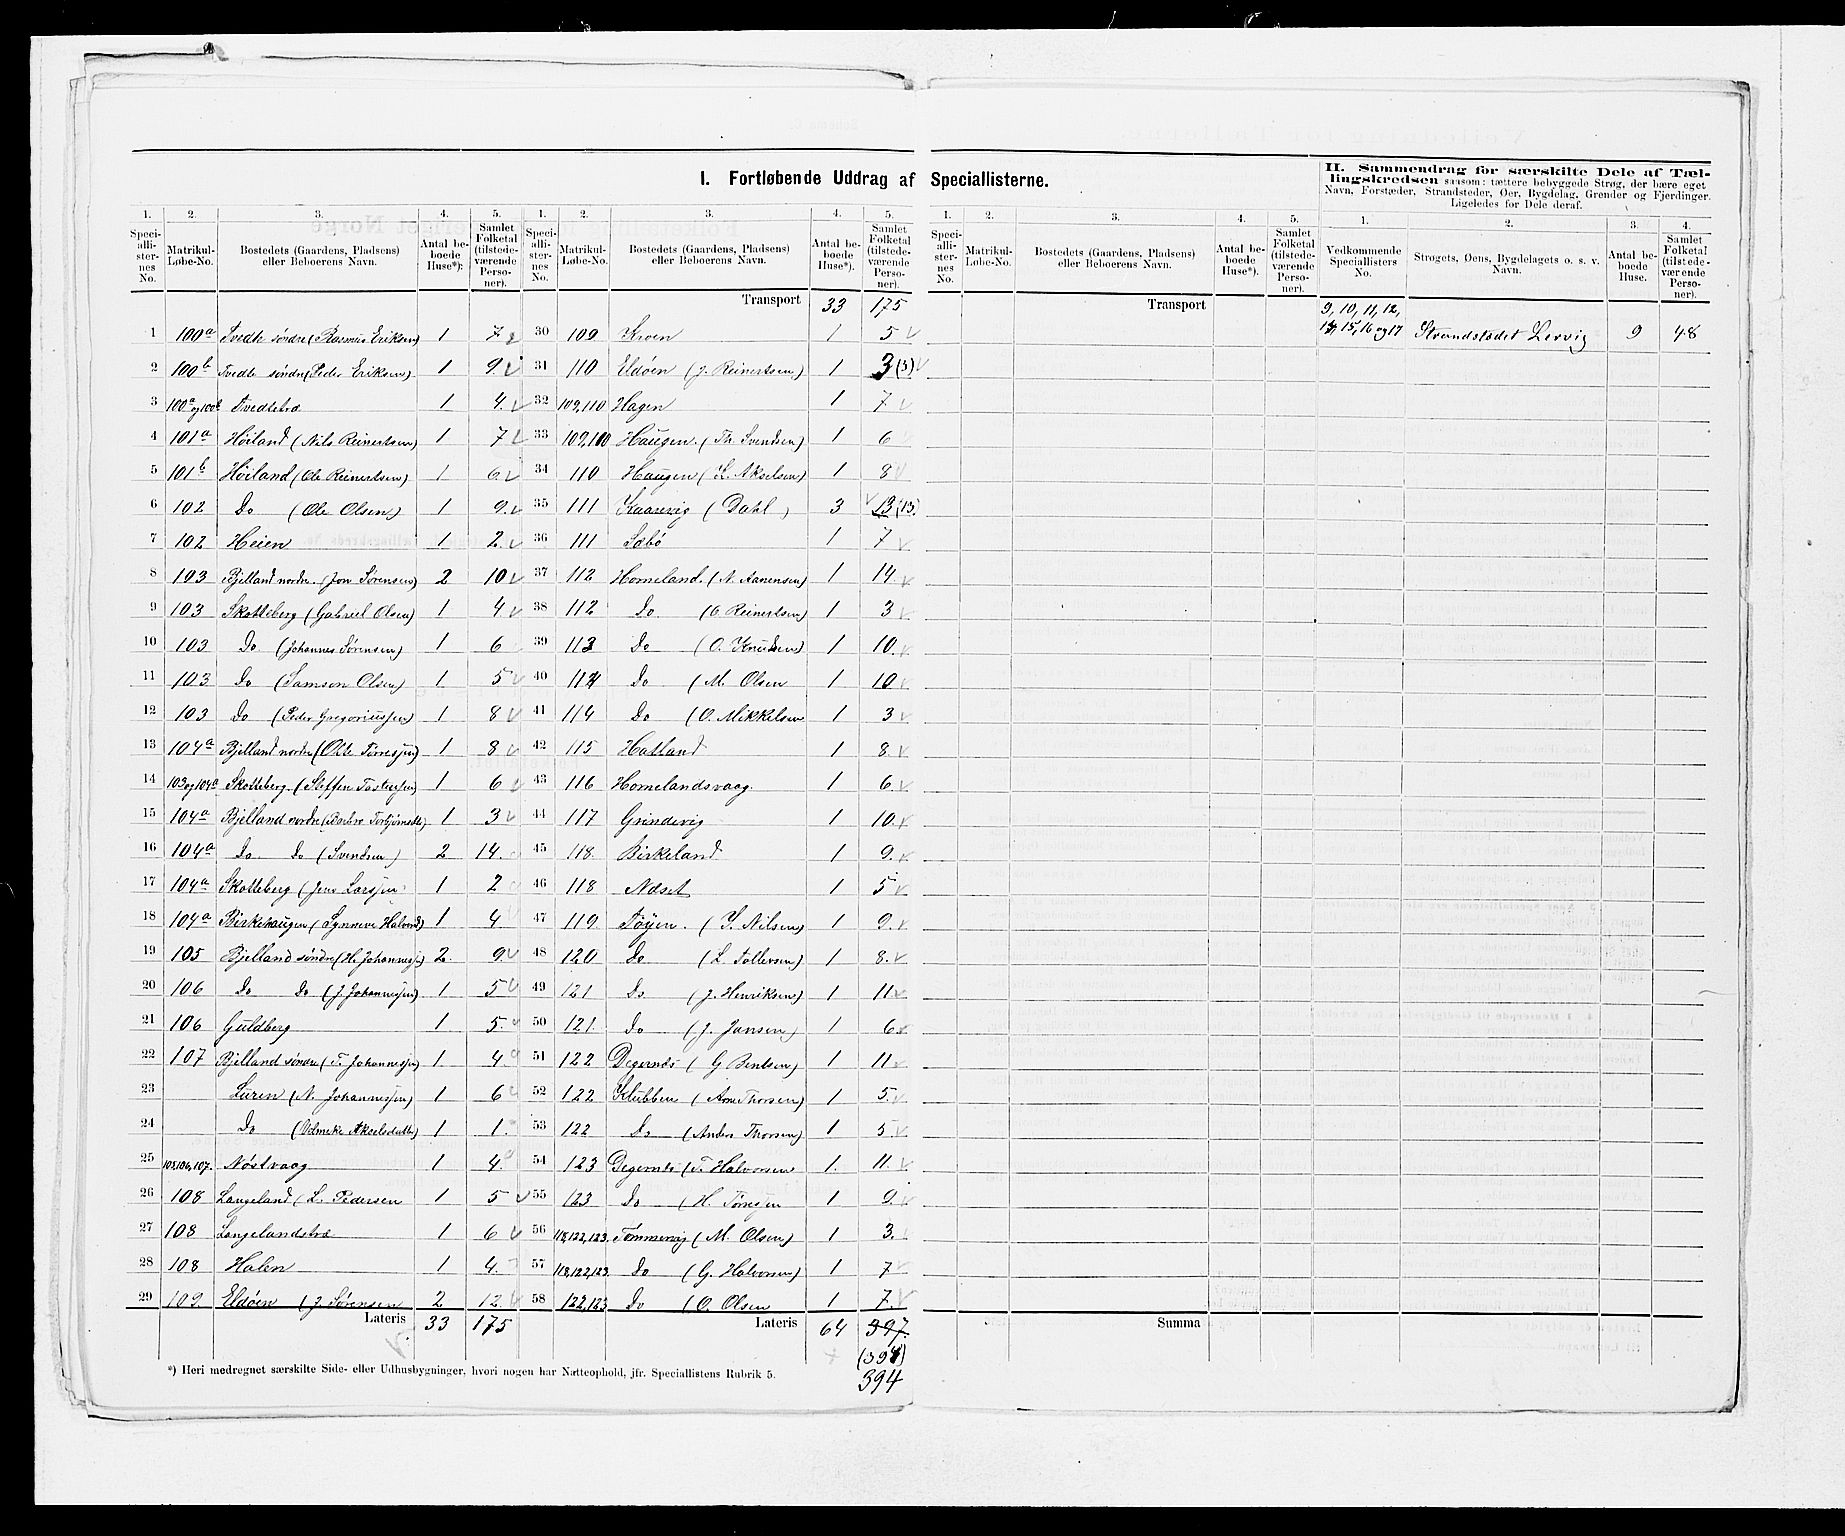 I. Fortløbende Uddrag af Speciallisterne.
II. Sammendrag for særskilte Dele af Tæl-
lingskredsen saasom: tættere bebyggede Strøg, der bære eget
Navn, Forstæder, Strandsteder, Øer, Bygdelag, Grender og Fjerdinger.
Ligeledes for Dele deraf.
1. 2. 3. 4. 5. 1. 2. 3. 4. 5. 1. 2. 3. 4. 5. 1. 2. 3. 4.
Speci-alli-ster-nes No. Matrikul-Løbe-No. Bostedets (Gaardens, Pladsens) eller Beboerens Navn. Antal be-boede Huse*): Samlet Folketal (tilstede-værende Perso-ner).
Speci-alli-ster-nes No. Matrikul-Løbe-No. Bostedets (Gaardens, Pladsens) eller Beboerens Navn. Antal be-boede Huse*). Samlet Folketal (tilstede-værende Perso-ner).
Speci-alli-ster-nes No. Matrikul-Løbe-No. Bostedets (Gaardens, Pladsens) eller Beboerens Navn. Antal be-boede Huse*). Samlet Folketal (tilstede-værende Perso-ner).
Vedkommende Speciallisters No. Strøgets, Øens, Bygdelagets o. s. v. Navn. Antal be-boede Huse. Samlet Folketal (tilstede-værende Perso-ner).
1 100a Tvedte søndre (Rasmus Eriksen) 1 7
2 100b Tvedte søndre (Peder Eriksen) 1 9
3 100a og 100b Tvedtebro 1 4
4 101a Høiland (Nils Reinertsen) 1 7
5 101b Høiland (Ole Reinertsen) 1 6
6 102 Do (Ole Olsen) 1 9
7 102 Heien 1 2
8 103 Bjelland nordre (Jon Sørensen) 2 10
9 103 Skotteberg (Gabriel Olsen) 1 4
10 103 Do (Johannes Sørensen) 1 6
11 103 Do (Samson Olsen) 1 5
12 103 Do (Peder Gregoriussen) 1 8
13 104a Bjelland nordre (Olle Tørresen) 1 8
14 103 og 104a Skotteberg (Steffen Tostensen) 1 6
15 104a Bjelland nordre (Barbro Torbjørnsdtr) 1 3
16 104a Do Do (Svendsen) 2 14
17 104a Skotteberg (Jens Larssen) 1 2
18 104a Birkehaugen (Synneve Halvorsd) 1 4
19 105 Bjelland søndre (H. Johannesen) 2 9
20 106 Do Do (J. Johannesen) 1 5
21 106 Guldberg 1 5
22 107 Bjelland søndre (T. Johannessen) 1 4
23 Luren (N. Johannessen) 1 6
24 Do (Akselsdatter) 1 1
25 105,106,107. Nøstvaag 1 4
26 108 Langeland (L. Pedersen 1 5
27 108 Langelandstræ 1 6
28 108 Halen 1 4
29 109. Eldøen (J. Sørensen 2 12
Lateris 33 175
Transport 33 175
30 109 Kroen 1 5
31 110 Eldøen (J. Reinertsen) 1 3 (3)
32 109,110 Hagen 1 7
33 109,110 Haugen. (Th. Svendsen) 1 6
34 110 Haugen (K. Akselsen) 1 8
35 111 Kaarevig (Dahl) 3 13 (13)
36 111 Sæbø 1 7
37 112 Horneland. (N. Aanensen) 1 14
38 112 Do (O Reinertsen) 1 3
39 113 Do (O. Knudsen) 1 10
40 114 Do (M. Olsen 1 10
41 114 Do (O. Mikkelsen 1 3
42 115 Hatland 1 8
43 116 Hornelandsvaag. 1 6
44 117 Grindevig 1 10
45 118. Birkeland 1 9
46 118 Næset 1 5
47 119 Tøyen. (Y. Nilsen) 1 9
48 120 Do (L. Tollevsen) 1 8
49 121 Do (J. Henriksen) 1 11
50 121. Do (J. Jansen) 1 6
51 122 Degernæs (G Bentsen) 1 11
52 122 Klubben (Arne Thorsen) 1 5
53 122 Do (Anders Thorsen) 1 5
54 123 Degernæs (T. Halvorsen 1. 11
55 123 Do (H. Tørresen 1 9
56 118,122,123. Tømmervig (M. Olsen) 1 3
57 118,122,123. Do (G. Halvorsen) 1 7
58 122,123 Do (O. Olsen 1 7
Lateris 64 397.
(394)
394
Transport
Summa
9, 10, 11, 12,
14, 15, 16 og 17 Strandstedet Lervig 9 48
*) Heri medregnet særskilte Side- eller Udhusbygninger, hvori nogen har Natteophold, jfr. Speciallistens Rubrik 5.